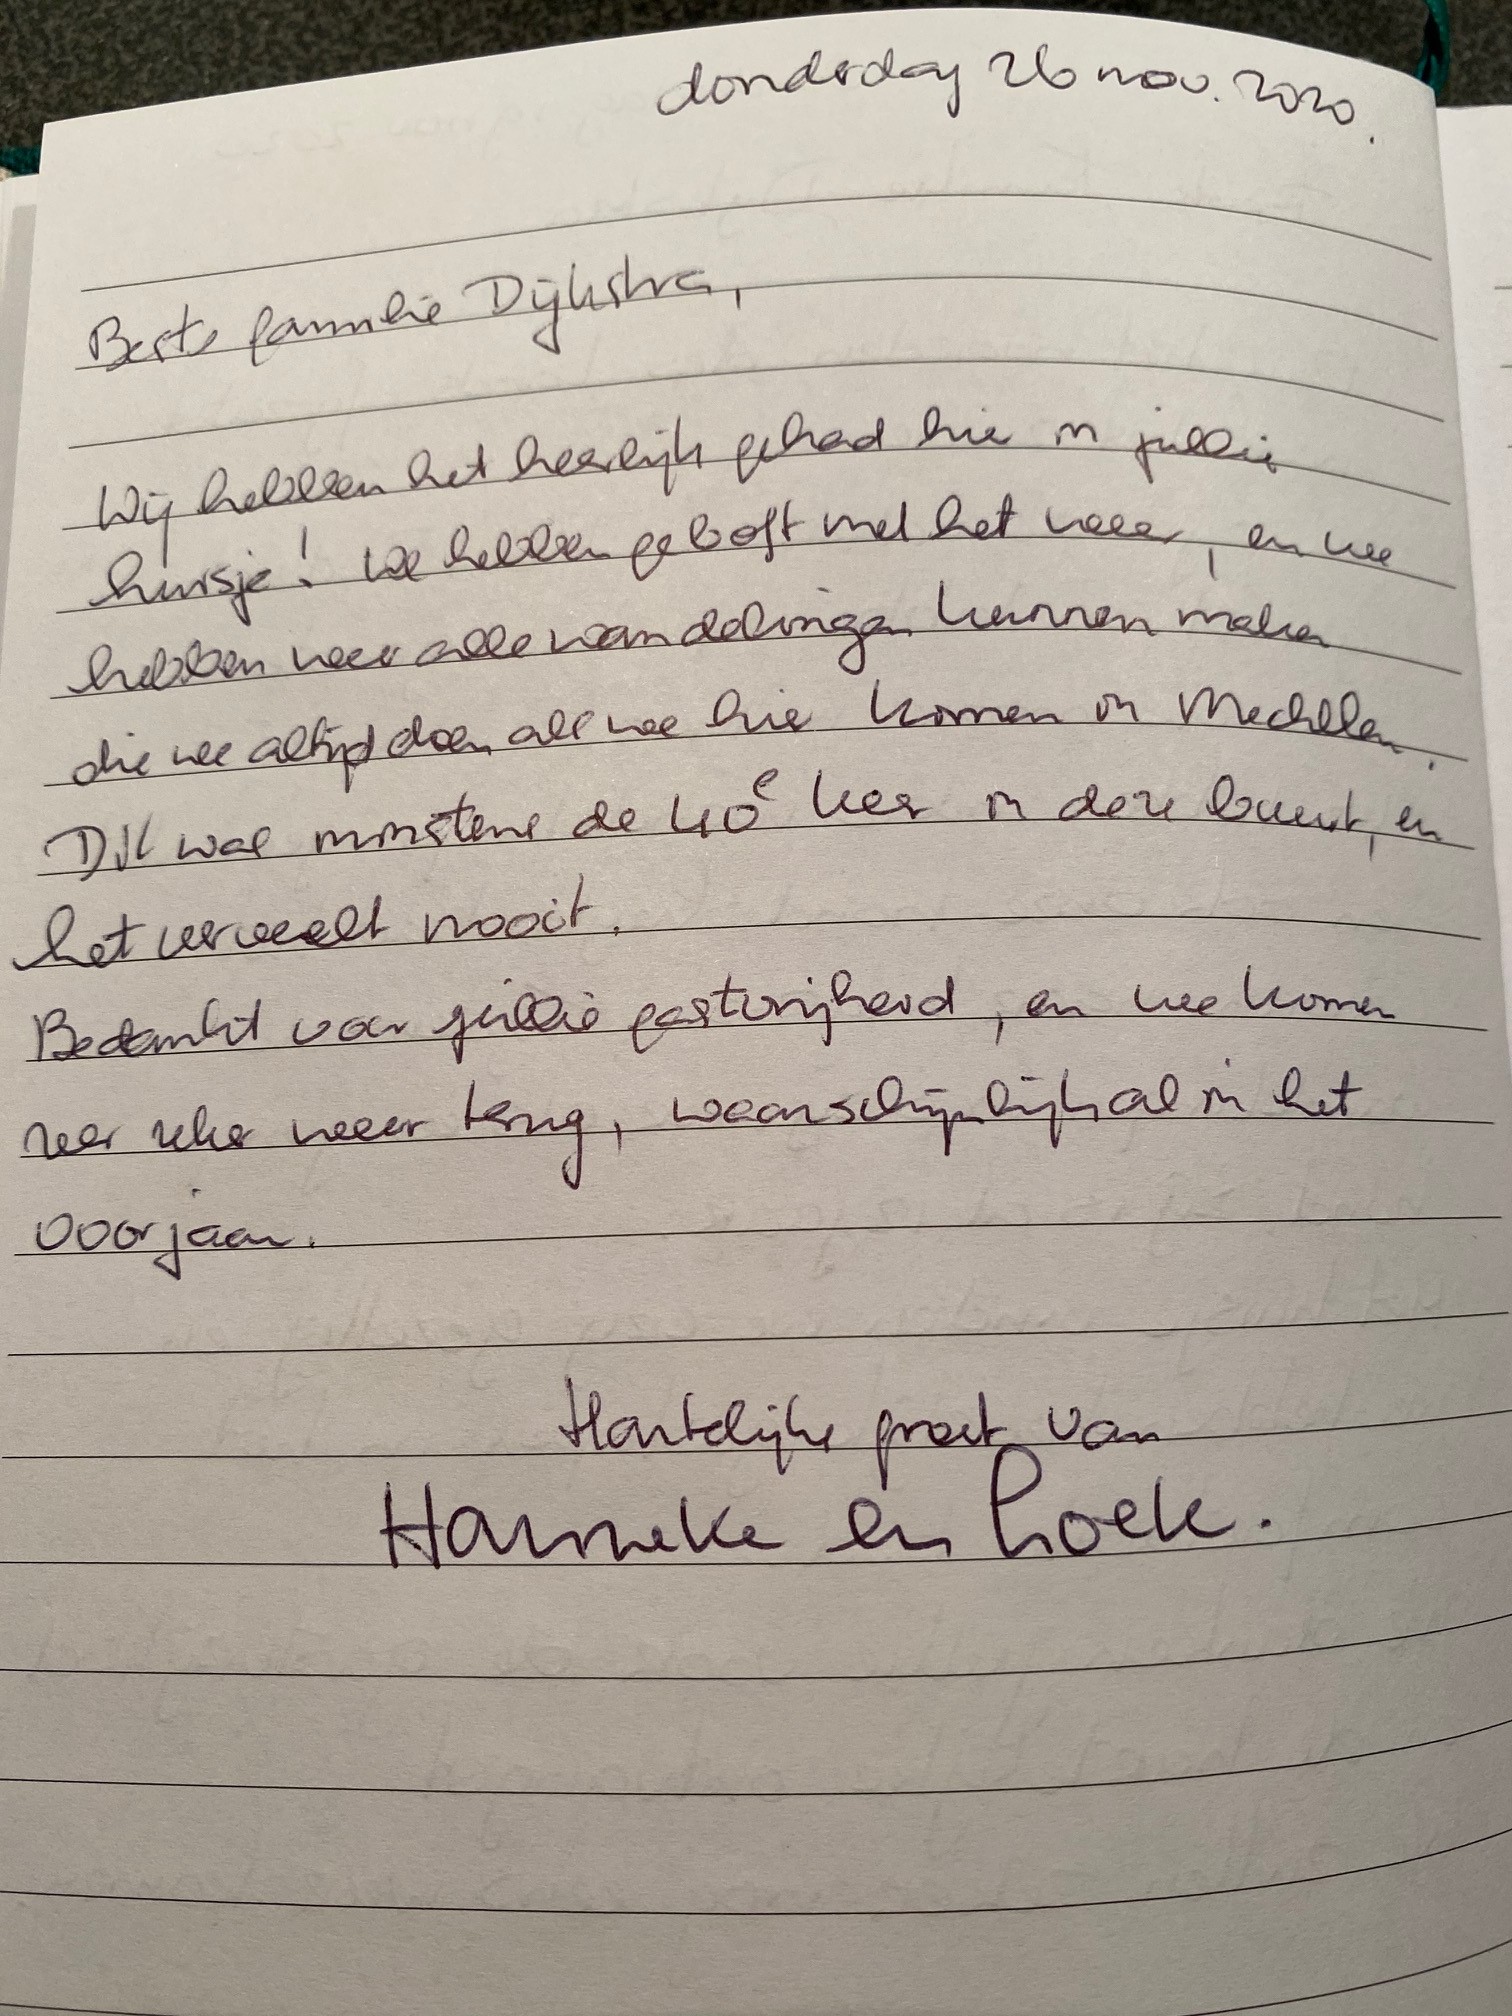 donderdag 26 nov. 2020.
Beste familie Dijkstra,
Wij hebben het heerlijk gehad hier in jullie
huisje! We hebben geboft met het weer, en we
hebben weer alle wandelingen kunnen maken
die we altijd doen als we hier komen in Mechelen.
Dit was minstens de 40e keer in deze buurt, en
het verveelt nooit.
Bedankt voor jullie gastvrijheid, en we komen
zeer zeker weer terug, waarschijnlijk al in het
voorjaar.
Hartelijke groet van
Hanneke en Loek.